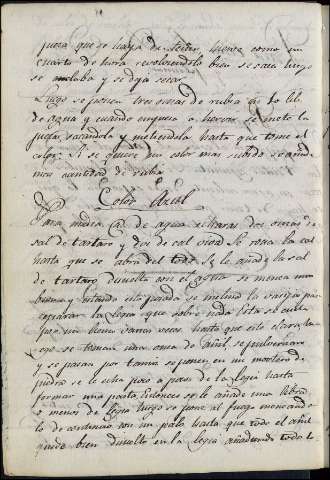 pieza que se haya de teñir, hierve como un
cuarto de hora revolviendolo bien se saca luego
se enclaba y se deja secar.
Luego se ponen tres onzas de rubia en 10 lib.
de agua y cuando empieza a hervir se mete la
pieza sacandola y metiendola hasta que tome el
color. Si se quiere un color mas subido se añade
mas cantidad de rubia.
Color Azul
Para media @ de agua echaras dos onzas de
sal de tartaro y dos de cal viva se rosea la cal
hasta que se abra del todo. Se le añade la sal
de tartaro disuelta con el agua se menea muy
bien y estando esta posada se
la legia que sobre nada
por un lienzo varias veces hasta que este clara, lu-
ego se toman una onza de añil, se pulverizan
y se pasan por tamiz se ponen en un mortero de
piedra se le echa poco a poco de la legia hasta
formar una pasta. Entonces se le añade una libra
o menos de legia luego se pone al fuego meneando-
lo de continuo con un palo hasta que todo el añil
quede bien disuelto en la legia añadiendo todo l